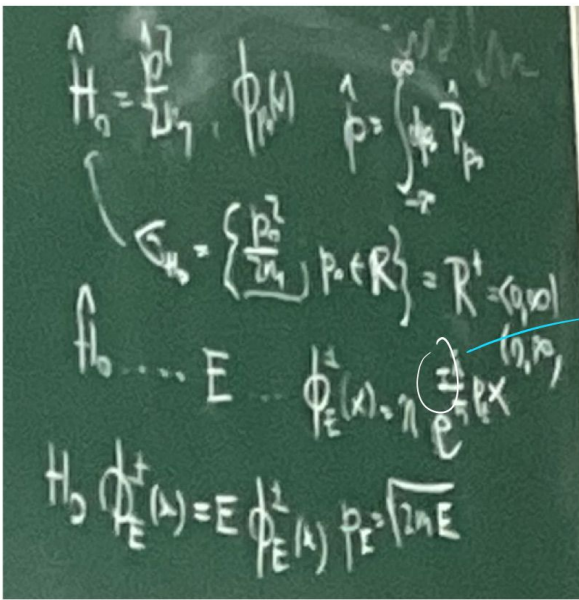 Ĥ₀ = p̂²/2m, ϕ_{p₀}(x) p̂ = ∫_{-∞}^{∞} dp₀ P̂_{p₀}
σ_{H₀} = { p₀²/2m, p₀ ∈ R } = R⁺ = (0,∞)
Ĥ₀ .... E .. ϕ_E^±(x) = η e^{±i/ħ p_E x}
H₀ ϕ_E^±(x) = E ϕ_E^±(x) p_E = √2mE